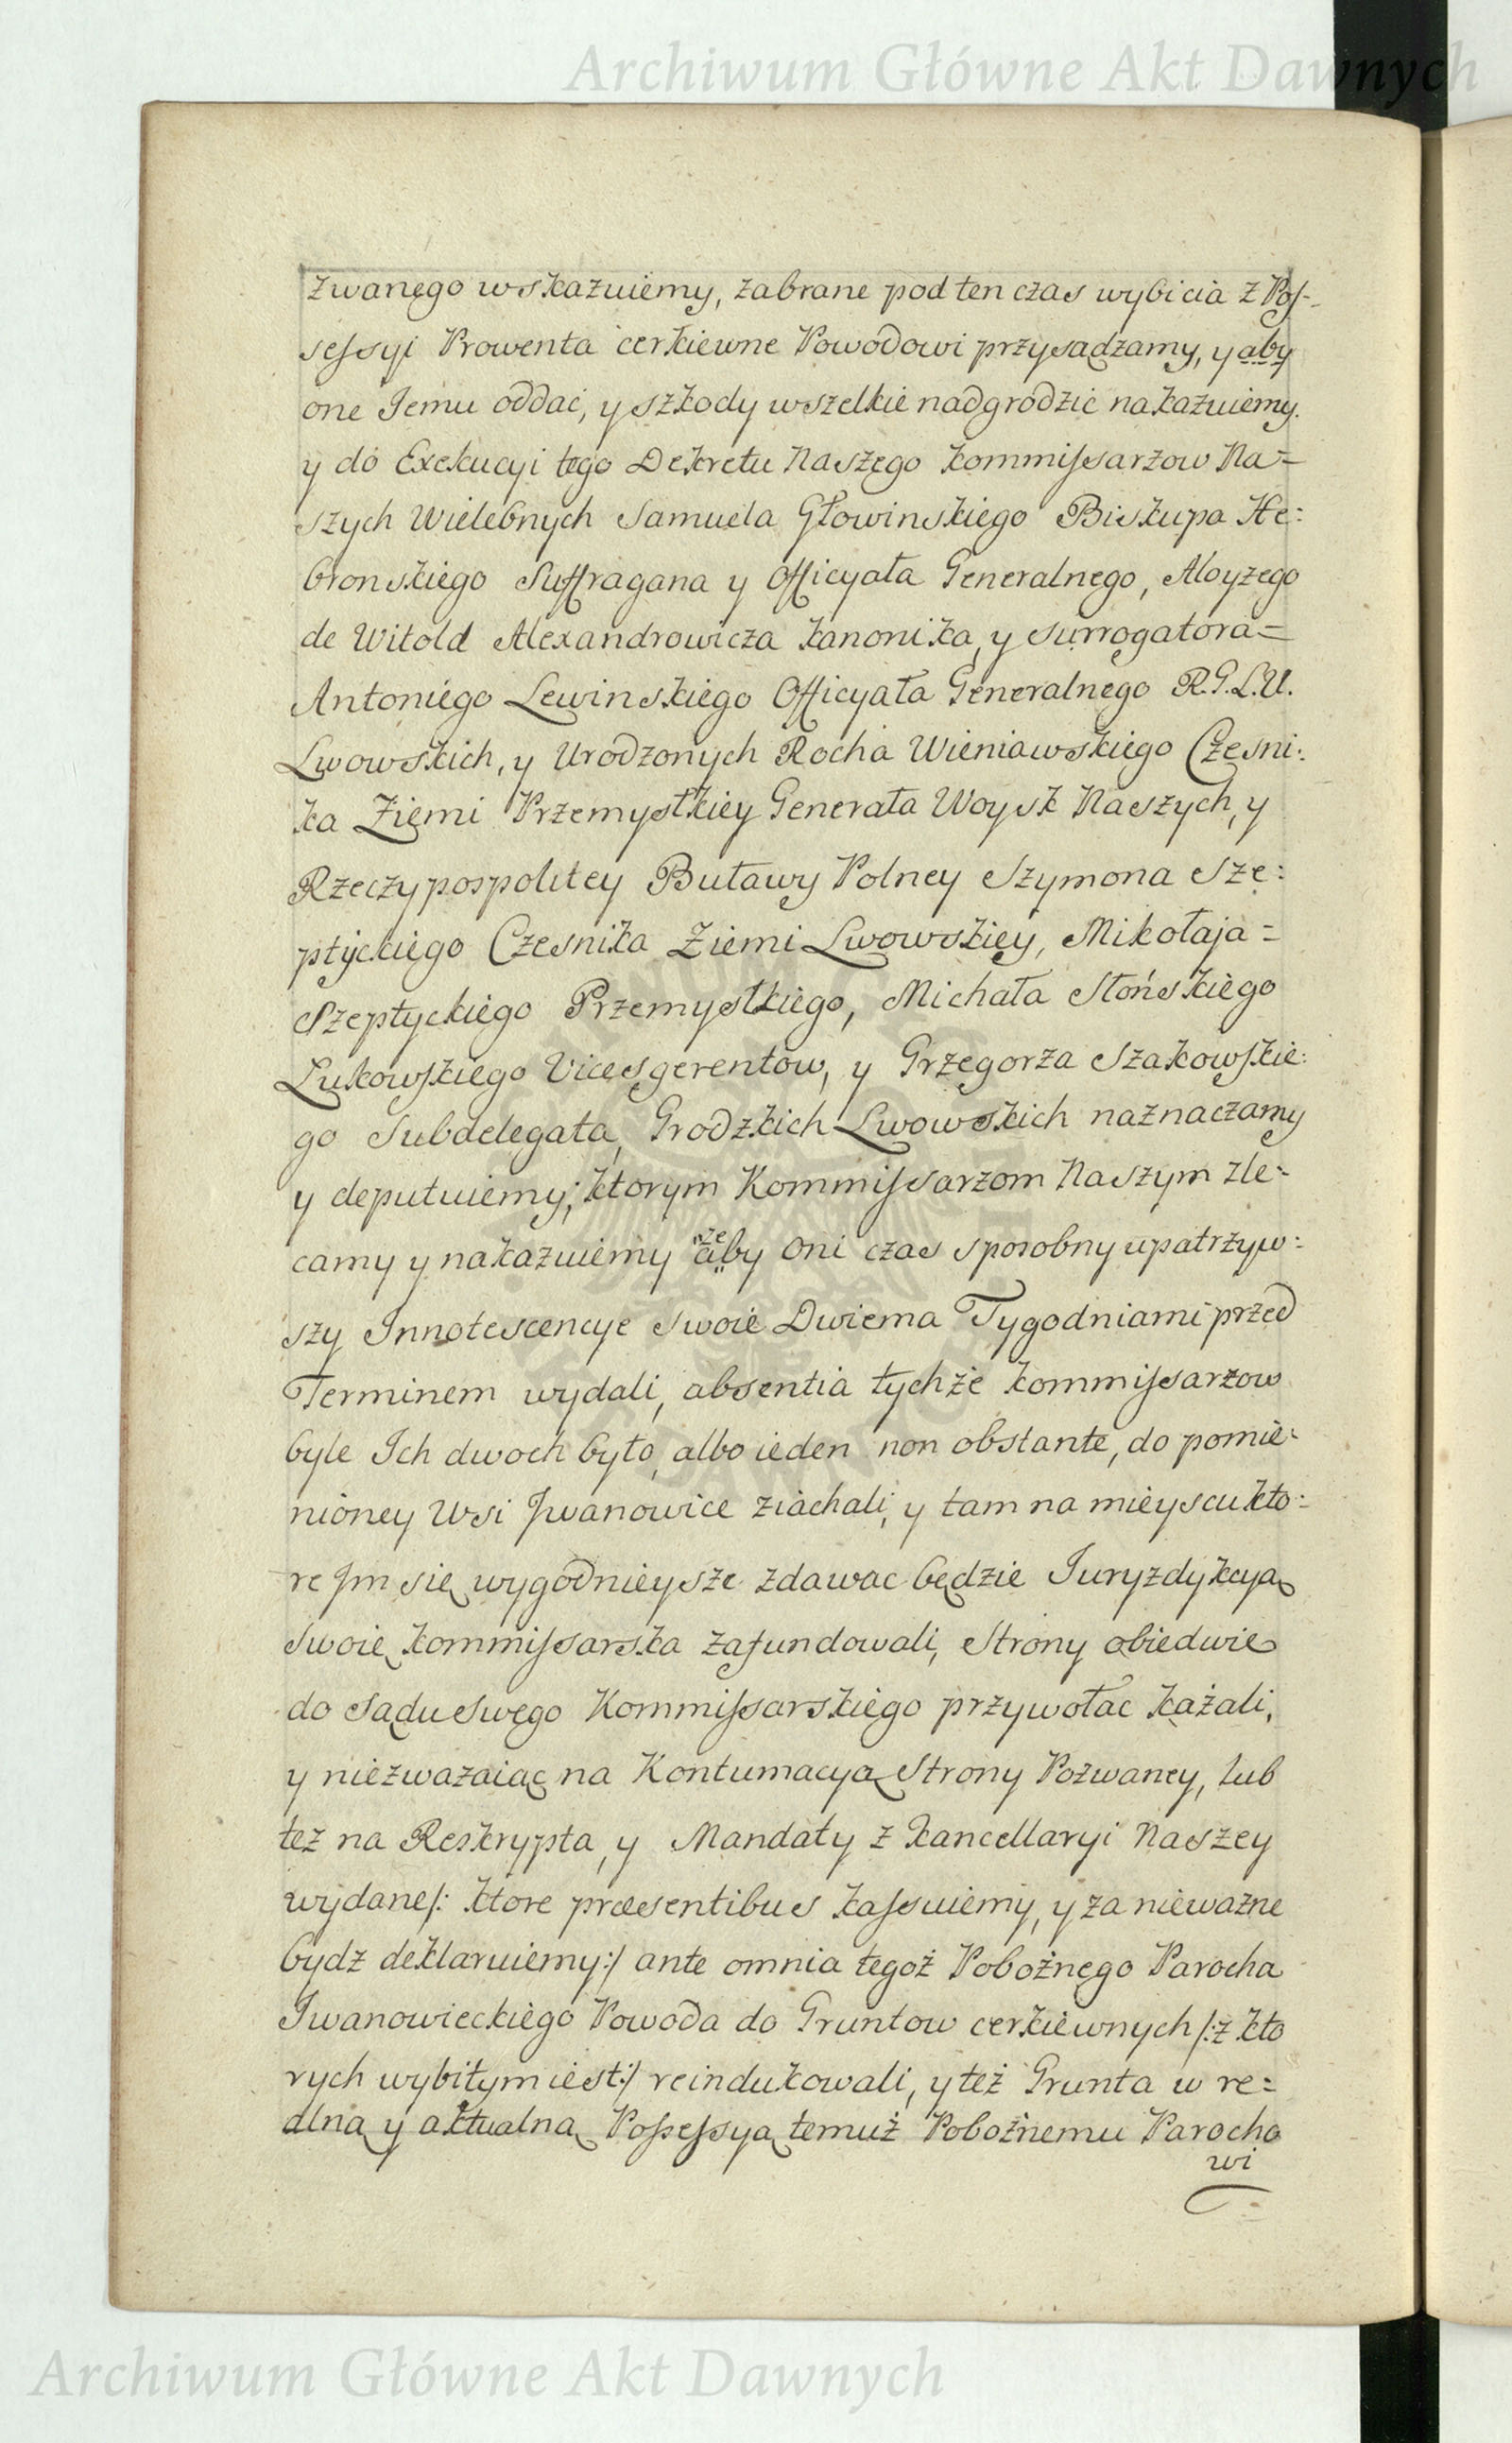 Archiwum Główne Akt Dawnych
zwanego wskazuiemy, zabrane pod ten czas wybicia z Pos-
sessyi Prowenta cerkiewne Powodowi przysądzamy, y aby
one Jemu oddać, y szkody wszelkie nadgrodzić nakazuiemy.
y do Exekucyi tego Dekretu Naszego kommissarzow Na=
szych Wielebnych Samuela Głowinskiego Biskupa He:
bronskiego Suffragana y Officyała Generalnego, Aloyzego
de Witold Alexandrowicza kanonika, y surrogatora=
Antoniego Lewinskiego Officyała Generalnego R.G.L.U.
Lwowskich, y Urodzonych Rocha Wieniawskiego Czesni:
ka Ziemi Przemyslkiey Generała Woysk Naszych, y
Rzeczypospolitey Buławy Polney Szymona Sze:
ptyckiego Czesnika Ziemi Lwowskiey, Mikołaja=
Szeptyckiego Przemyslkiego, Michała Słońskiego
Łukowskiego Vicesgerentow, y Grzegorza Szakowskie:
go Subdelegata, Grodzkich Lwowskich naznaczamy
y deputuiemy; ktorym Kommissarzom Naszym zle-
camy y nakazuiemy aby że oni czas sposobny upatrzyw:
szy Innotescencye swoie Dwiema Tygodniami przed
Terminem wydali, absentia tychże kommissarzow
byle Ich dwoch było, albo ieden non obstante, do pomie:
nioney Wsi Jwanowice ziachali, y tam na mieyscu kto:
re Jm się wygodnieysze zdawac będzie Juryzdykcyą
swoię kommissarska zafundowali, Strony obiedwie
do sądu swego Kommissarskiego przywołac każali,
y niezwazaiąc na Kontumacyą Strony Pozwaney, lub
też na Reskrypta, y Mandaty z kancellaryi Naszey
wydane/: ktore præsentibus kassuiemy, y za nieważne
bydz deklaruiemy:/ ante omnia tegoż Pobożnego Parocha
Jwanowieckiego Powoda do Gruntow cerkiewnych /:z kto
rych wybitym iest:/ reindukowali, y też Grunta w re=
alną y aktualną Possessyą temuż Pobożnemu Parocho
wi
Archiwum Główne Akt Dawnych